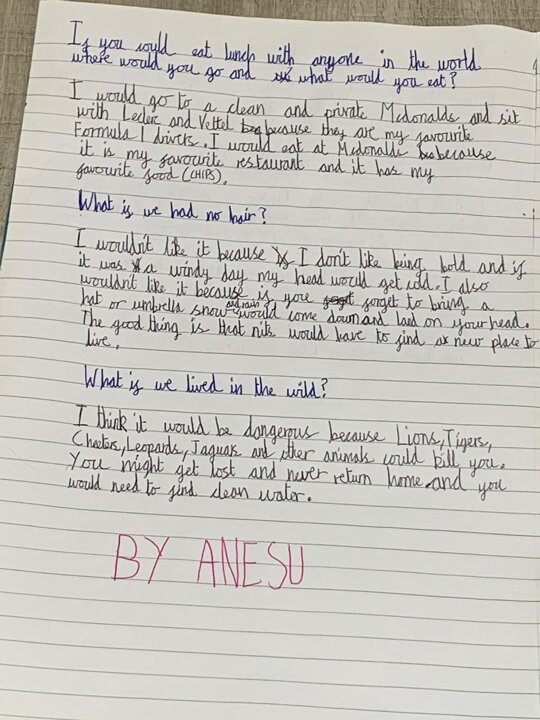 If you could eat lunch with anyone in the world
where would you go and what would you eat?
I would go to a clean and private Mcdonalds and sit
with Lecler and Vettel because they are my favourite
Formula 1 drivers. I would eat at Mcdonalds because
it is my favourite restaurant and it has my
favourite food (CHIPS).
What if we had no hair?
I wouldn't like it because I don't like being bold and if
it was a windy day my head would get cold. I also
wouldn't like it because if you forget to bring a
hat or umbrella snow and rain would come down and land on your head.
The good thing is that nits would have to find a new place to
live.
What if we lived in the wild?
I think it would be dangerous because Lions, Tigers,
Cheeters, Leopards, Jaguars and other animals could kill you.
You might get lost and never return home and you
would need to find clean water.
BY ANESU